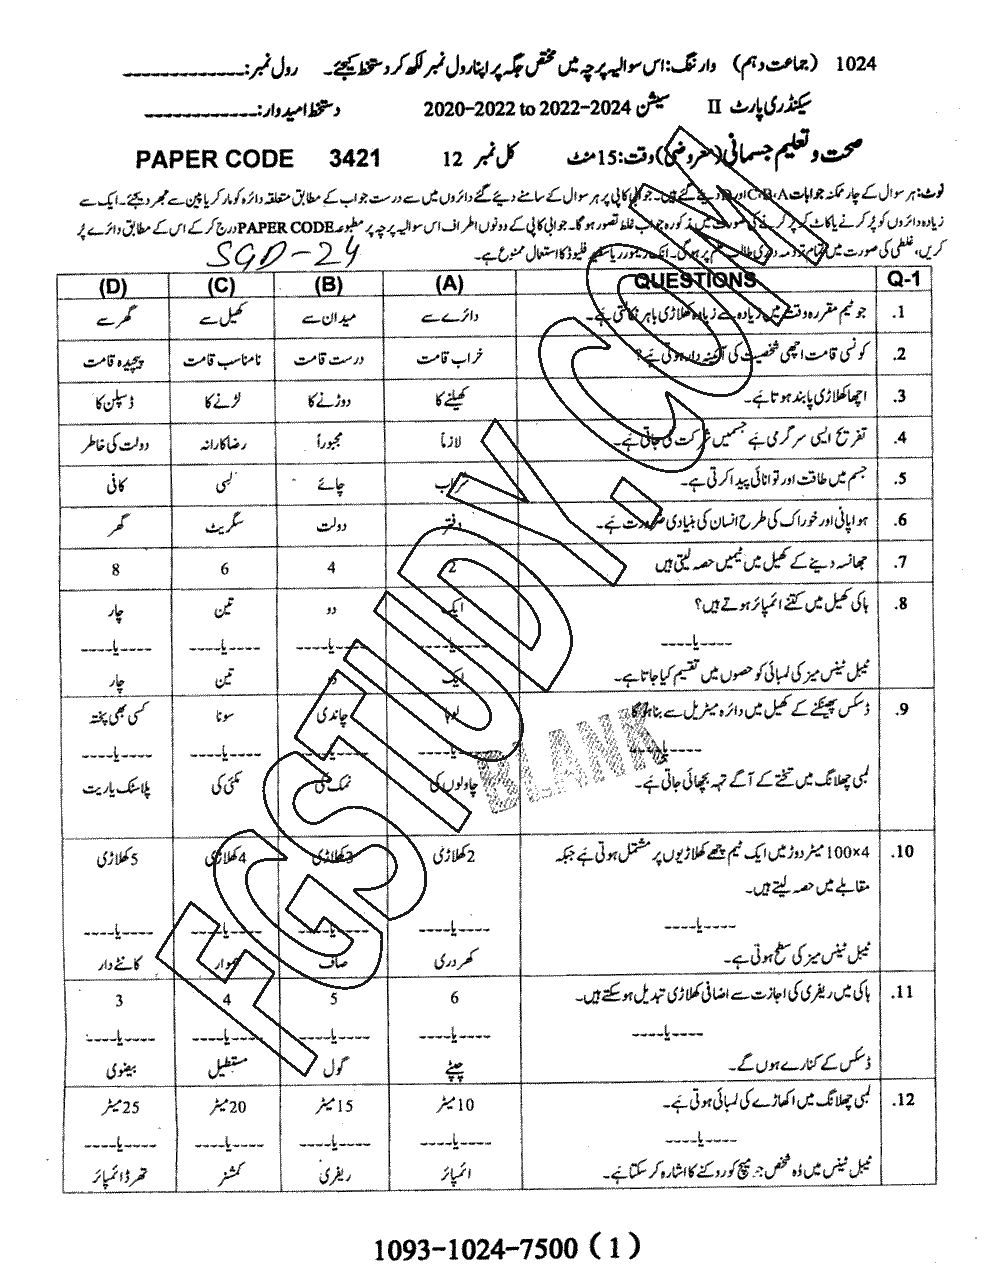 1024 (جماعت دہم) وارننگ: اس سوالیہ پرچہ میں مختص جگہ پر اپنا رول نمبر لکھ کر دستخط کیجئے۔ رول نمبر: ____________
سیکنڈری پارٹ II سیشن 2020-2022 to 2022-2024 دستخط امیدوار: ____________
صحت و تعلیم جسمانی (معروضی) وقت: 15 منٹ کل نمبر 12 PAPER CODE 3421
نوٹ: ہر سوال کے چار ممکنہ جوابات A، B، C اور D دیئے گئے ہیں۔ جوابی کاپی پر ہر سوال کے سامنے دیئے گئے دائروں میں سے درست جواب کے مطابق متعلقہ دائرہ کو مارکر یا پین سے بھر دیجئے۔ ایک سے
زیادہ دائروں کو پُر کرنے یا کاٹ کر پُر کرنے کی صورت میں مذکورہ جواب غلط تصور ہوگا۔ جوابی کاپی کے دونوں اطراف اس سوالیہ پرچہ پر مطبوعہ PAPER CODE درج کر کے اس کے مطابق دائرے پُر
کریں، غلطی کی صورت میں تمام تر ذمہ داری طالب علم پر ہوگی۔ انک ریموور یا سفید فلیوڈ کا استعمال ممنوع ہے۔
SGD-24
Q-1 QUESTIONS (A) (B) (C) (D)
1. جو ٹیم مقررہ وقت میں زیادہ سے زیادہ کھلاڑی باہر نکالتی ہے۔ دائرے سے میدان سے کھیل سے گھر سے
2. کونسی قامت اچھی شخصیت کی آئینہ دار ہوتی ہے؟ خراب قامت درست قامت نامناسب قامت پیچیدہ قامت
3. اچھا کھلاڑی پابند ہوتا ہے۔ کھیلنے کا دوڑنے کا لڑنے کا ڈسپلن کا
4. تفریح ایسی سرگرمی ہے جسمیں شرکت کی جاتی ہے۔ لازماً مجبوراً رضاکارانہ دولت کی خاطر
5. جسم میں طاقت اور توانائی پیدا کرتی ہے۔ شراب چائے لسی کافی
6. ہوا پانی اور خوراک کی طرح انسان کی بنیادی ضرورت ہے۔ دفتر دولت سگریٹ گھر
7. جھانسہ دینے کے کھیل میں ٹیمیں حصہ لیتی ہیں 2 4 6 8
8. ہاکی کھیل میں کتنے ائمپائر ہوتے ہیں؟ ایک دو تین چار
----یا---- ----یا---- ----یا---- ----یا---- ----یا----
ٹیبل ٹینس میز کی لمبائی کو حصوں میں تقسیم کیا جاتا ہے۔ ایک دو تین چار
9. ڈسکس پھینکنے کے کھیل میں دائرہ میٹریل سے بنا ہوگا لوہا چاندی سونا کسی بھی پختہ
----یا---- ----یا---- ----یا---- ----یا---- ----یا----
لمبی چھلانگ میں تختے کے آگے تہہ بچھائی جاتی ہے۔ چاولوں کی نمک کی مکئی کی پلاسٹک یا ریت
10. 4×100 میٹر دوڑ میں ایک ٹیم چھے کھلاڑیوں پر مشتمل ہوتی ہے جبکہ 2 کھلاڑی 3 کھلاڑی 4 کھلاڑی 5 کھلاڑی
مقابلے میں حصہ لیتے ہیں۔
----یا---- ----یا---- ----یا---- ----یا---- ----یا----
ٹیبل ٹینس میز کی سطح ہوتی ہے۔ کھردری صاف ہموار کانٹے دار
11. ہاکی میں ریفری کی اجازت سے اضافی کھلاڑی تبدیل ہو سکتے ہیں۔ 6 5 4 3
----یا---- ----یا---- ----یا---- ----یا---- ----یا----
ڈسکس کے کنارے ہوں گے۔ چپٹے گول مستطیل بیضوی
12. لمبی چھلانگ میں اکھاڑے کی لمبائی ہوتی ہے۔ 10 میٹر 15 میٹر 20 میٹر 25 میٹر
----یا---- ----یا---- ----یا---- ----یا---- ----یا----
ٹیبل ٹینس میں وُہ شخص جو میچ کو روکنے کا اشارہ کر سکتا ہے۔ ائمپائر ریفری کمشنر تھرڈ ائمپائر
FGSTUDY.COM
BLANK
1093-1024-7500 (1)